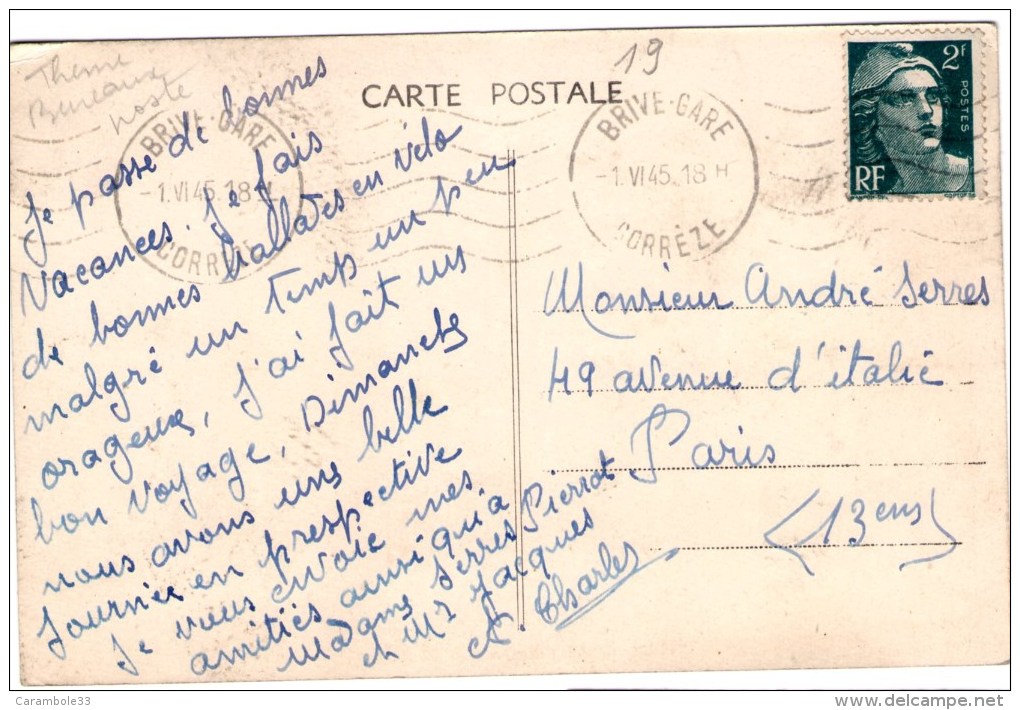 Theme
Bureaux
poste
19
CARTE POSTALE
2F
POSTES
RF
BRIVE-GARE
-1.VI 45.18H
CORRÈZE
BRIVE-GARE
-1.VI 45.18H
CORRÈZE
Je passe de bonnes
Vacances. Je fais
de bonnes ballades en vélo
malgré un temps un peu
orageux, j'ai fait un
bon voyage, Dimanche
nous avons une belle
journée en prespective
Je vous envoie mes
amitiés ainsi qu'a
Madame Serres Pierrot
et Mr Jacques
Charles
Monsieur André Serres
49 avenue d'italie
Paris
(13ens)
Carambole33
www.delcampe.net